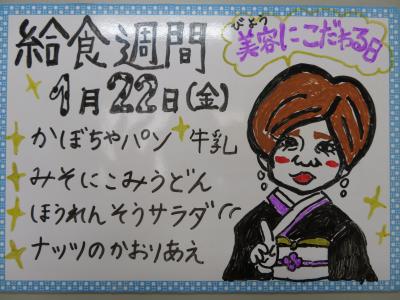 給食週間
びよう
美容にこだわる日
1月22日(金)
かぼちゃパン 牛乳
みそにこみうどん
ほうれんそうサラダ
ナッツのかおりあえ